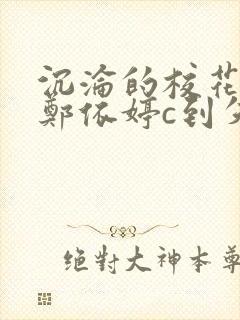 沉淪的校花
鄭依婷c到失
绝對大神本尊